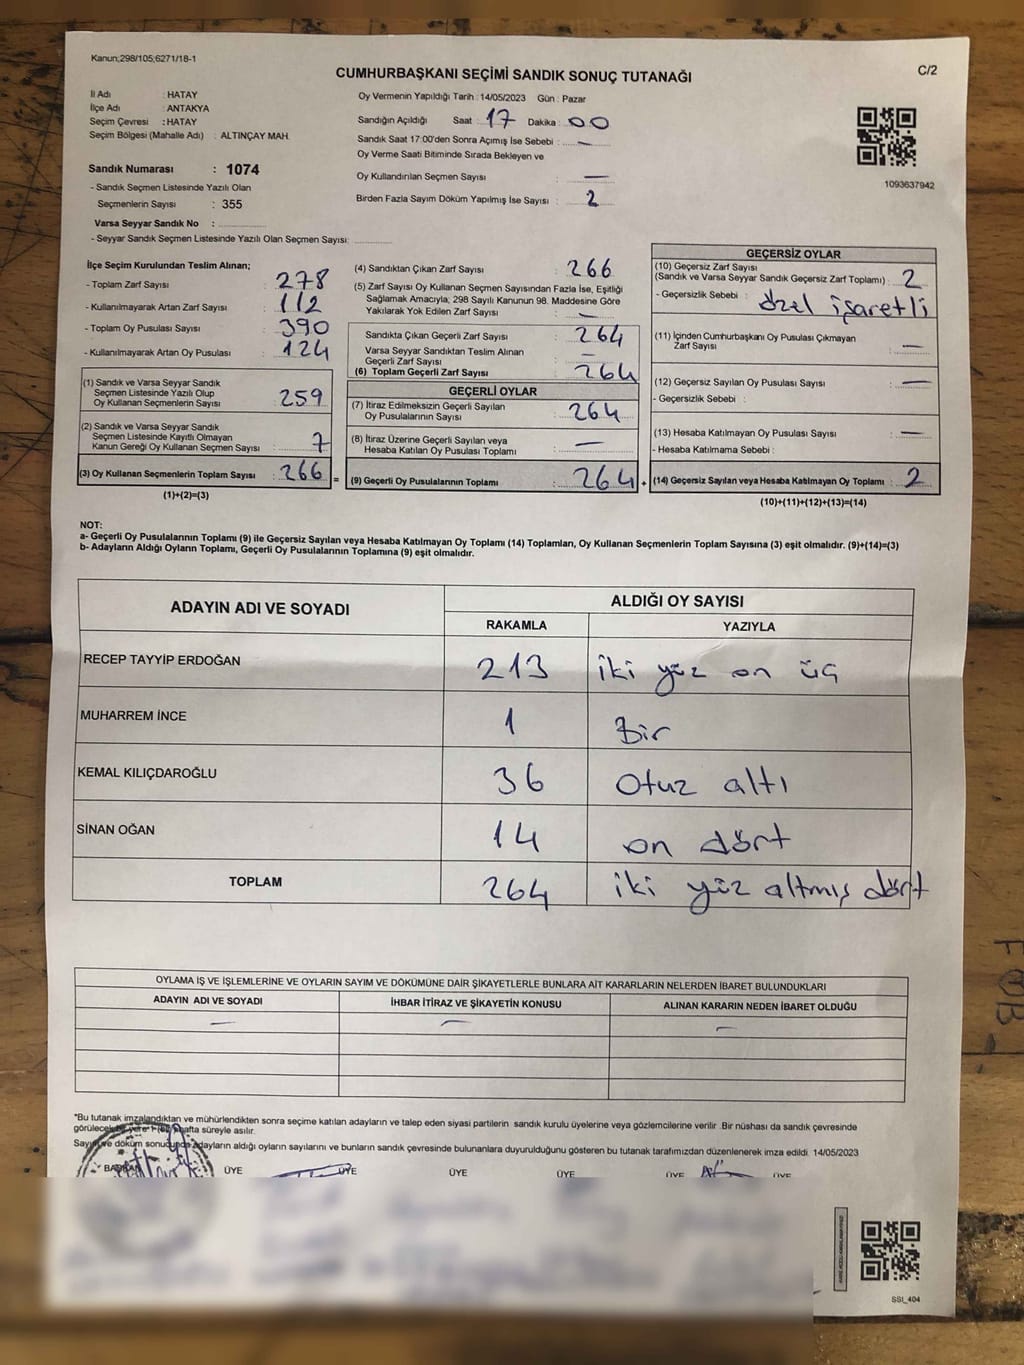 Kanun;298/105;6271/18-1
C/2
CUMHURBAŞKANI SEÇİMİ SANDIK SONUÇ TUTANAĞI
İl Adı : HATAY
İlçe Adı : ANTAKYA
Seçim Çevresi : HATAY
Seçim Bölgesi (Mahalle Adı) : ALTINÇAY MAH.
Sandık Numarası : 1074
- Sandık Seçmen Listesinde Yazılı Olan
Seçmenlerin Sayısı : 355
Varsa Seyyar Sandık No :
- Seyyar Sandık Seçmen Listesinde Yazılı Olan Seçmen Sayısı:
Oy Vermenin Yapıldığı Tarih : 14/05/2023 Gün : Pazar
Sandığın Açıldığı Saat : 17 Dakika : 00
Sandık Saat 17:00'den Sonra Açımış İse Sebebi : —
Oy Verme Saati Bitiminde Sırada Bekleyen ve
Oy Kullandırılan Seçmen Sayısı : —
Birden Fazla Sayım Döküm Yapılmış İse Sayısı : 2
1093637942
İlçe Seçim Kurulundan Teslim Alınan;
- Toplam Zarf Sayısı : 278
- Kullanılmayarak Artan Zarf Sayısı : 112
- Toplam Oy Pusulası Sayısı : 390
- Kullanılmayarak Artan Oy Pusulası : 124
(1) Sandık ve Varsa Seyyar Sandık
Seçmen Listesinde Yazılı Olup
Oy Kullanan Seçmenlerin Sayısı : 259
(2) Sandık ve Varsa Seyyar Sandık
Seçmen Listesinde Kayıtlı Olmayan
Kanun Gereği Oy Kullanan Seçmen Sayısı : 7
(3) Oy Kullanan Seçmenlerin Toplam Sayısı : 266 =
(1)+(2)=(3)
(4) Sandıktan Çıkan Zarf Sayısı : 266
(5) Zarf Sayısı Oy Kullanan Seçmen Sayısından Fazla İse, Eşitliği
Sağlamak Amacıyla, 298 Sayılı Kanunun 98. Maddesine Göre
Yakılarak Yok Edilen Zarf Sayısı : —
Sandıkta Çıkan Geçerli Zarf Sayısı : 264
Varsa Seyyar Sandıktan Teslim Alınan
Geçerli Zarf Sayısı : —
(6) Toplam Geçerli Zarf Sayısı : 264
GEÇERLİ OYLAR
(7) İtiraz Edilmeksizin Geçerli Sayılan
Oy Pusulalarının Sayısı : 264
(8) İtiraz Üzerine Geçerli Sayılan veya
Hesaba Katılan Oy Pusulası Toplamı : —
(9) Geçerli Oy Pusulalarının Toplamı : 264 +
GEÇERSİZ OYLAR
(10) Geçersiz Zarf Sayısı
(Sandık ve Varsa Seyyar Sandık Geçersiz Zarf Toplamı) : 2
- Geçersizlik Sebebi : özel işaretli
(11) İçinden Cumhurbaşkanı Oy Pusulası Çıkmayan
Zarf Sayısı : —
(12) Geçersiz Sayılan Oy Pusulası Sayısı : —
- Geçersizlik Sebebi :
(13) Hesaba Katılmayan Oy Pusulası Sayısı : —
- Hesaba Katılmama Sebebi :
(14) Geçersiz Sayılan veya Hesaba Katılmayan Oy Toplamı : 2
(10)+(11)+(12)+(13)=(14)
NOT:
a- Geçerli Oy Pusulalarının Toplamı (9) ile Geçersiz Sayılan veya Hesaba Katılmayan Oy Toplamı (14) Toplamları, Oy Kullanan Seçmenlerin Toplam Sayısına (3) eşit olmalıdır. (9)+(14)=(3)
b- Adayların Aldığı Oyların Toplamı, Geçerli Oy Pusulalarının Toplamına (9) eşit olmalıdır.
ADAYIN ADI VE SOYADI
ALDIĞI OY SAYISI
RAKAMLA YAZIYLA
RECEP TAYYİP ERDOĞAN 213 iki yüz on üç
MUHARREM İNCE 1 Bir
KEMAL KILIÇDAROĞLU 36 Otuz altı
SİNAN OĞAN 14 on dört
TOPLAM 264 iki yüz altmış dört
OYLAMA İŞ VE İŞLEMLERİNE VE OYLARIN SAYIM VE DÖKÜMÜNE DAİR ŞİKAYETLERLE BUNLARA AİT KARARLARIN NELERDEN İBARET BULUNDUKLARI
ADAYIN ADI VE SOYADI İHBAR İTİRAZ VE ŞİKAYETİN KONUSU ALINAN KARARIN NEDEN İBARET OLDUĞU
— — —
*Bu tutanak imzalandıktan ve mühürlendikten sonra seçime katılan adayların ve talep eden siyasi partilerin sandık kurulu üyelerine veya gözlemcilerine verilir. Bir nüshası da sandık çevresinde
görülecek bir yere 1 (bir) hafta süreyle asılır.
Sayım ve döküm sonucunda adayların aldığı oyların sayılarını ve bunların sandık çevresinde bulunanlara duyurulduğunu gösteren bu tutanak tarafımızdan düzenlenerek imza edildi. 14/05/2023
BAŞKAN ÜYE ÜYE ÜYE ÜYE ÜYE ÜYE
SSI_404